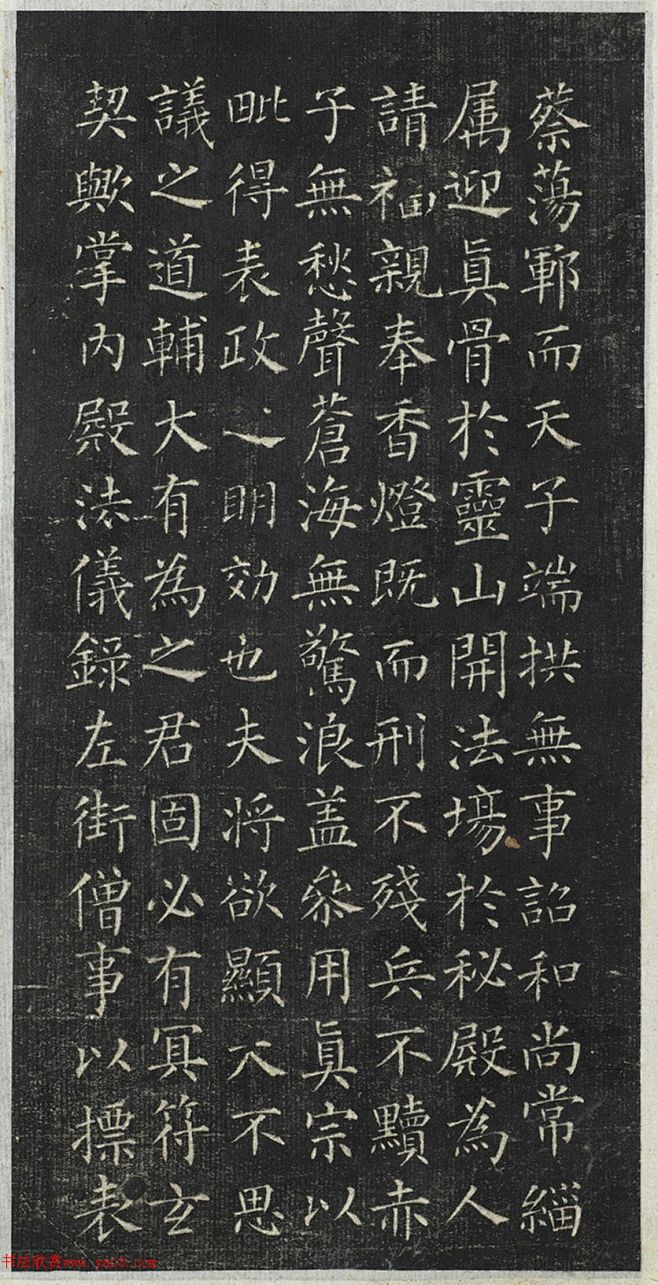 蔡蕩鄆而天子端拱無事詔和尚常緇
属迎真骨於靈山開法場於秘殿為人
請福親奉香燈既而刑不殘兵不黷赤
子無愁聲蒼海無驚浪盖叅用真宗以
毗得表政之明効也夫將欲顯大不思
議之道輔大有為之君固必有冥符玄
契歟掌内殿法儀錄左街僧事以摽表
书法欣赏www.yac8.com